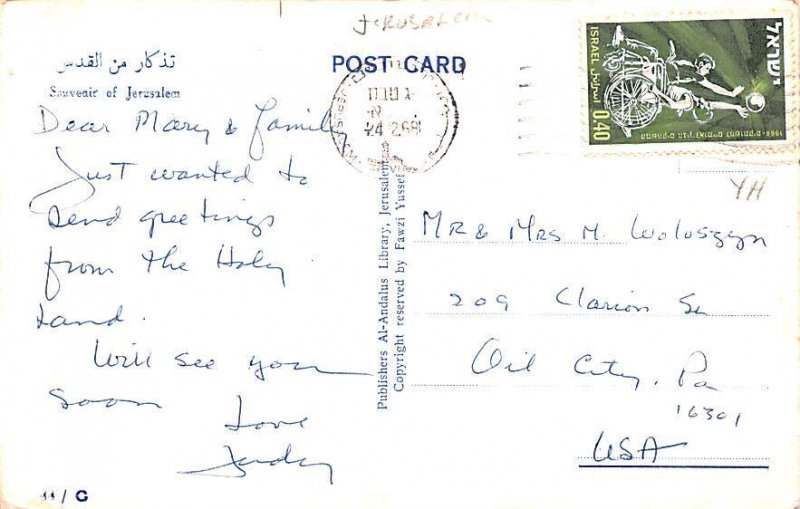 JERUSALEM
تذكار من القدس
Souvenir of Jerusalem
POST CARD
ישראל
ISRAEL اسرائيل
0.40
Dear Mary & Family
Just wanted to
send greetings
from the Holy
Land.
Will see you
soon
Love
Judy
11 / C
Publishers Al-Andalus Library, Jerusalem
Copyright reserved by Fawzi Yussef
YH
MR & MRS M. Woloszyn
209 Clarion St
Oil City, Pa
16301
USA